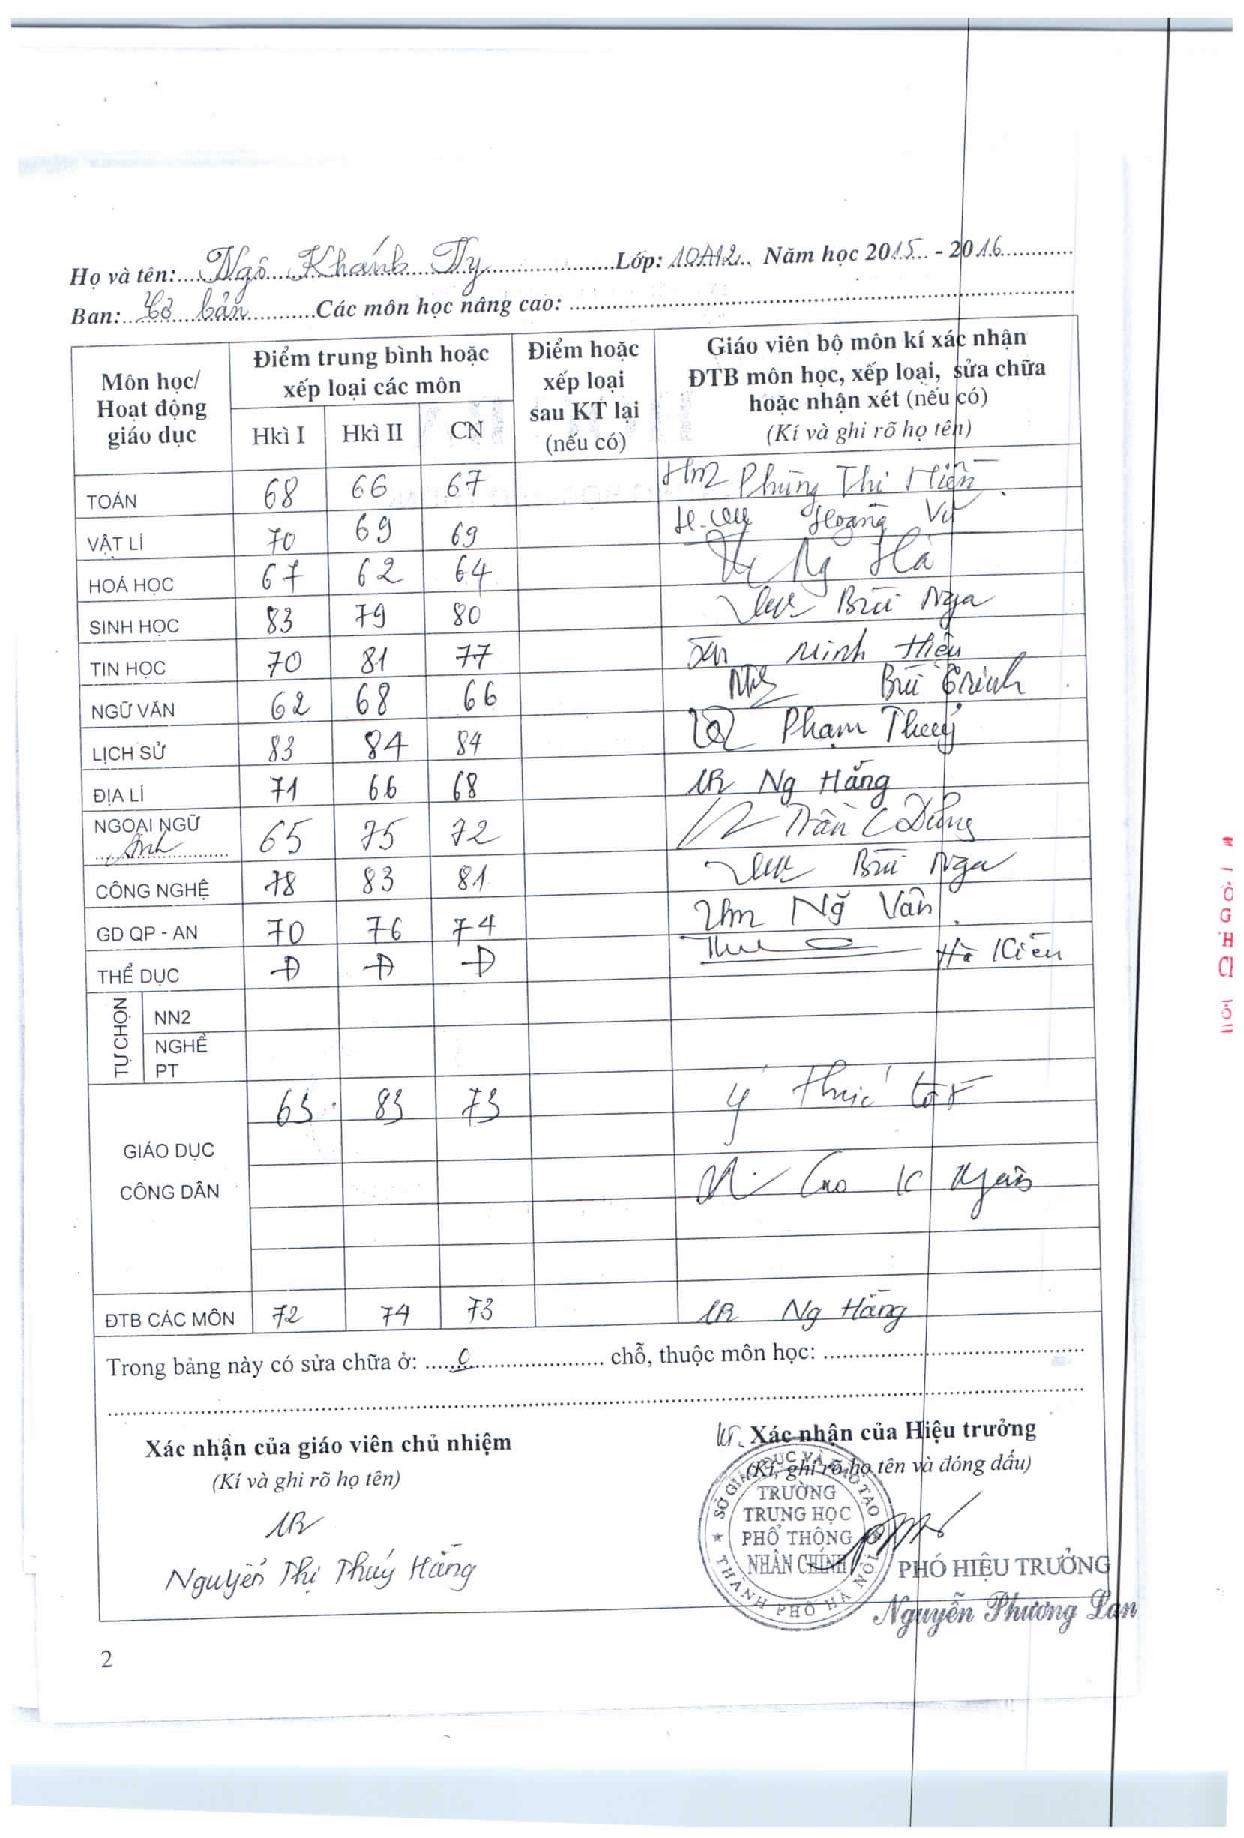 Họ và tên: Ngô Khánh Vy Lớp: 10A12 Năm học 2015 - 2016
Ban: Cơ bản Các môn học nâng cao:
Môn học/ Hoạt động giáo dục
Điểm trung bình hoặc xếp loại các môn
Hkì I Hkì II CN
Điểm hoặc xếp loại sau KT lại (nếu có)
Giáo viên bộ môn kí xác nhận ĐTB môn học, xếp loại, sửa chữa hoặc nhận xét (nếu có)
(Kí và ghi rõ họ tên)
TOÁN 68 66 67 Phùng Thị Hiền
VẬT LÍ 70 69 69 Hoàng Vụ
HOÁ HỌC 67 62 64 Ng Hà
SINH HỌC 83 79 80 Bùi Nga
TIN HỌC 70 81 77 Minh Hiếu
NGỮ VĂN 62 68 66 Bùi Trinh
LỊCH SỬ 83 84 84 Phạm Thuý
ĐỊA LÍ 71 66 68 Ng Hằng
NGOẠI NGỮ Anh 65 75 72 Trần Dũng
CÔNG NGHỆ 78 83 81 Bùi Nga
GD QP - AN 70 76 74 Ng Vân
THỂ DỤC Đ Đ Đ Hà Kiên
TỰ CHỌN
NN2
NGHỀ PT
GIÁO DỤC CÔNG DÂN 63 83 73 ý thức tốt
Cao K Ngân
ĐTB CÁC MÔN 72 74 73 Ng Hằng
Trong bảng này có sửa chữa ở: 0 chỗ, thuộc môn học:
Xác nhận của giáo viên chủ nhiệm
(Kí và ghi rõ họ tên)
Nguyễn Thị Thúy Hằng
KT. Xác nhận của Hiệu trưởng
(Kí, ghi rõ họ tên và đóng dấu)
SỞ GIÁO DỤC VÀ ĐÀO TẠO
TRƯỜNG
TRUNG HỌC
PHỔ THÔNG
NHÂN CHÍNH
THÀNH PHỐ HÀ NỘI
PHÓ HIỆU TRƯỞNG
Nguyễn Phương Lan
2